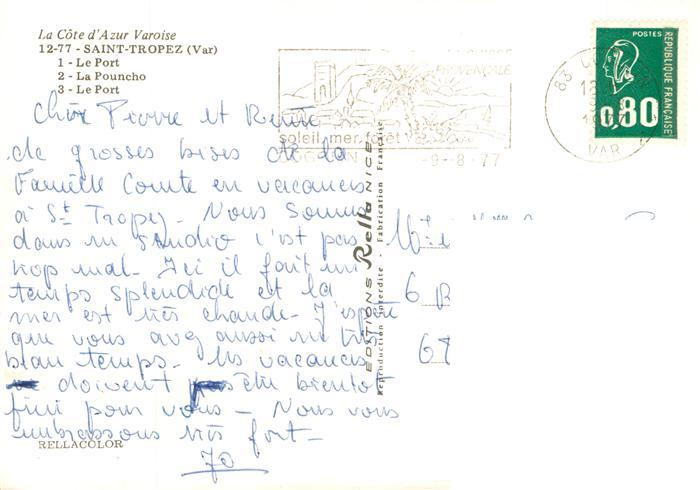 La Côte d'Azur Varoise
12-77 - SAINT-TROPEZ (Var)
1 - Le Port
2 - La Pouncho
3 - Le Port
Cher Pierre et Renée
de grosses bises de la
Famille Comte en vacances
à St Tropez - Nous sommes
dans un studio c'est pas
trop mal - Ici il fait un
temps splendide et la
mer est très chaude - J'espère
que vous avez aussi un très
beau temps - Les vacances
doivent être bientot
fini pour vous - Nous vous
embrassons très fort -
Jo
RELLACOLOR
PROVENÇALE
soleil, mer, forêt
COGOLIN
-9-8-77
EDITIONS Rella NICE
Reproduction Interdite - Fabrication Française
POSTES
REPUBLIQUE FRANÇAISE
0,80
83
VAR
6
67